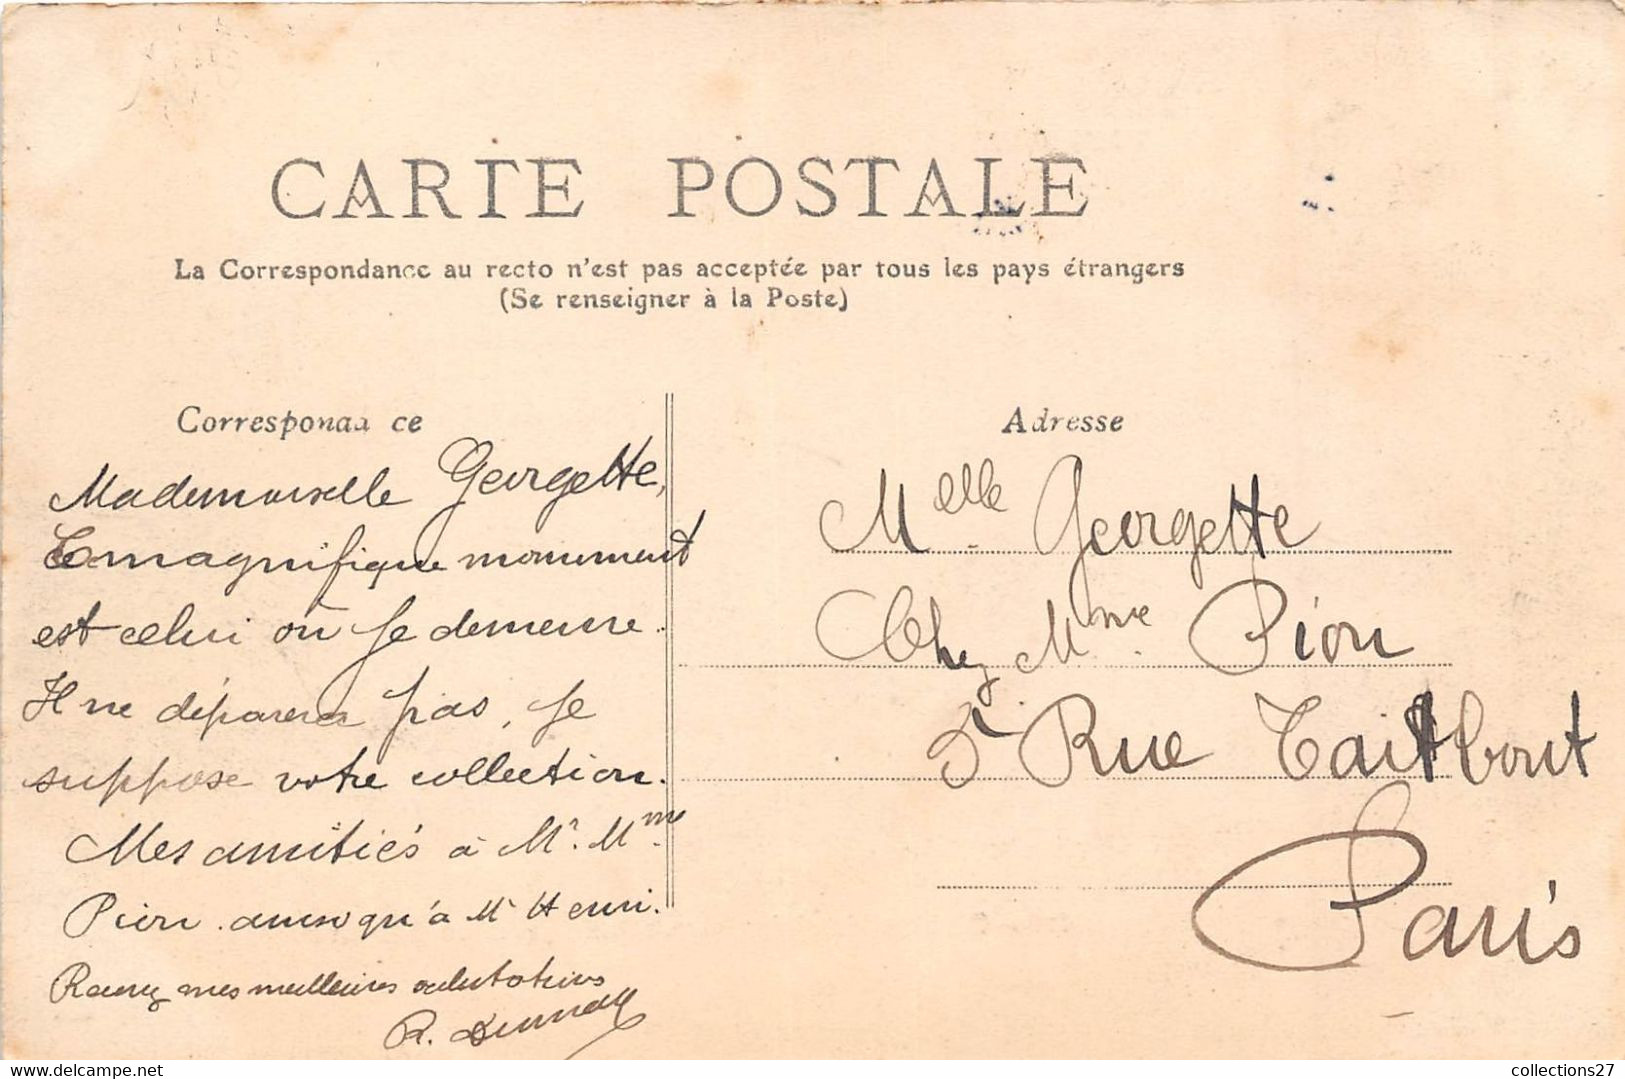 CARTE POSTALE
La Correspondance au recto n'est pas acceptée par tous les pays étrangers
(Se renseigner à la Poste)
Correspondance
Mademoiselle Georgette,
Ce magnifique monument
est celui où je demeure.
Il ne déparera pas, je
suppose votre collection.
Mes amitiés à Mr. Mme
Pion ainsi qu'à Mr Henri.
Recevez mes meilleures salutations
R.
Adresse
Melle Georgette
Chez Mme. Pion
Rue Taitbout
Paris
www.delcampe.net
collections27